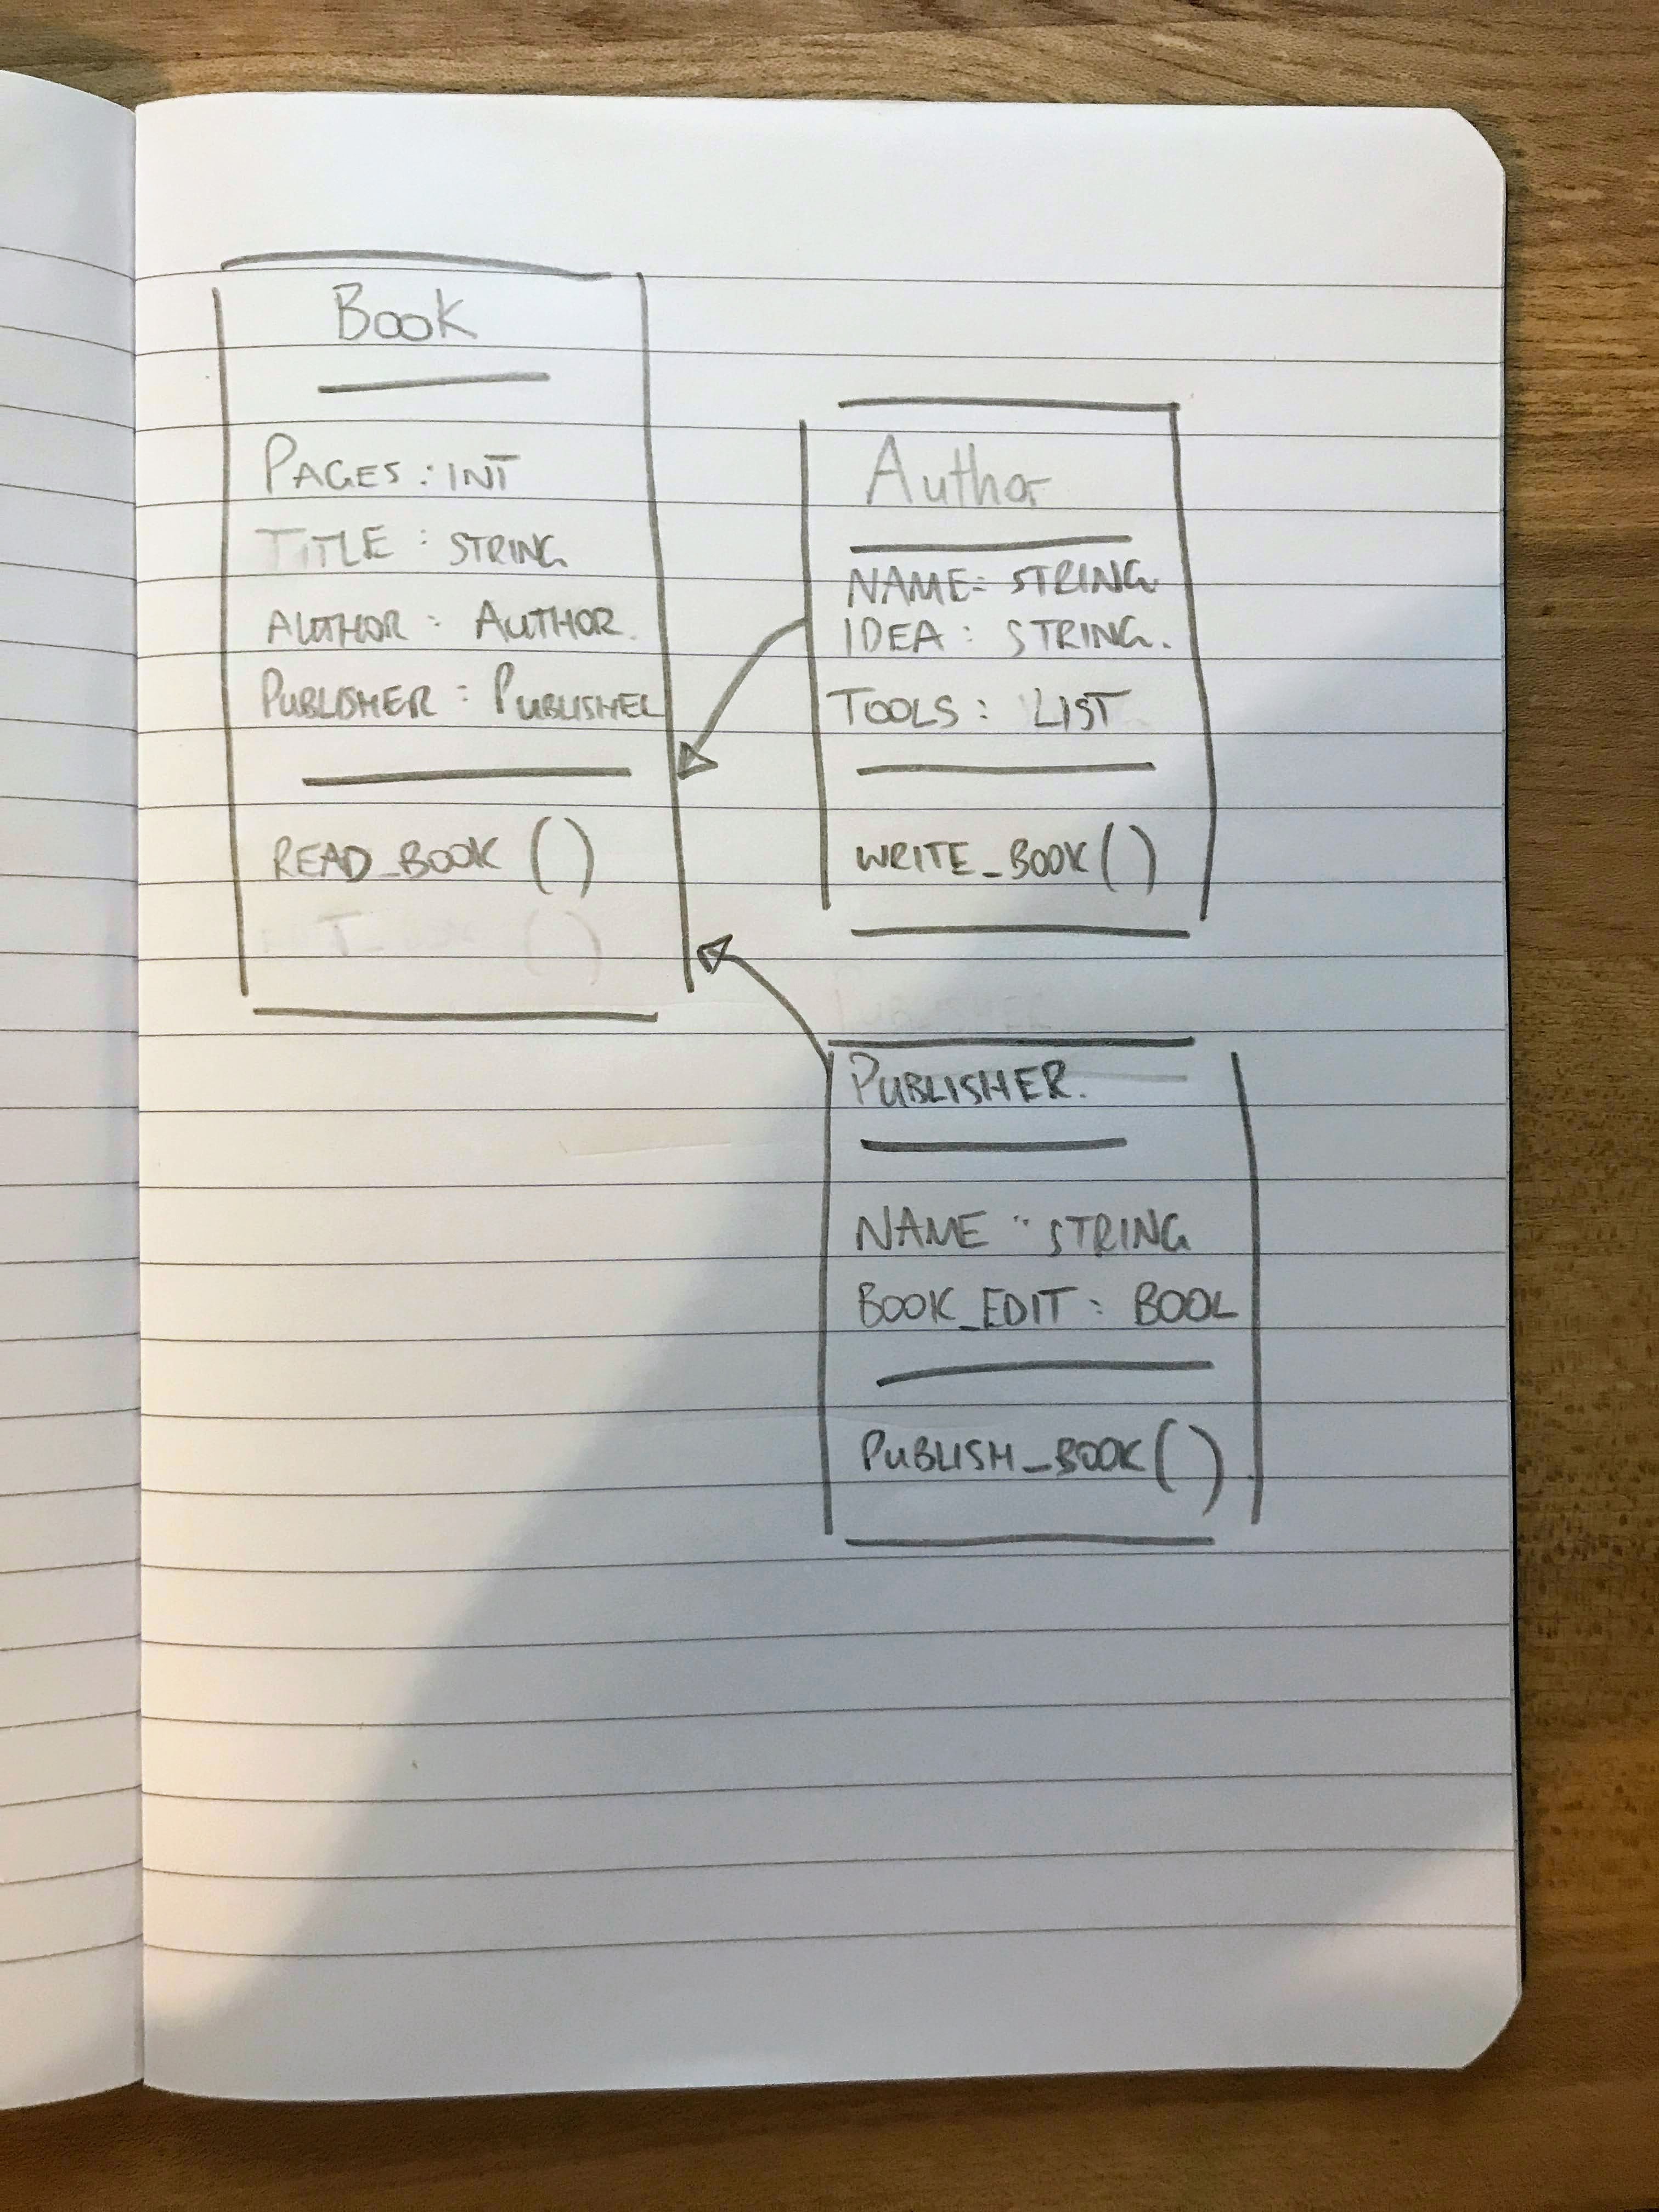 Book
PAGES : INT
TITLE : STRING
AUTHOR : AUTHOR.
PUBLISHER : PUBLISHER
READ_BOOK ()
Author
NAME : STRING
IDEA : STRING.
TOOLS : LIST
WRITE_BOOK()
PUBLISHER.
NAME : STRING
BOOK_EDIT : BOOL
PUBLISH_BOOK()